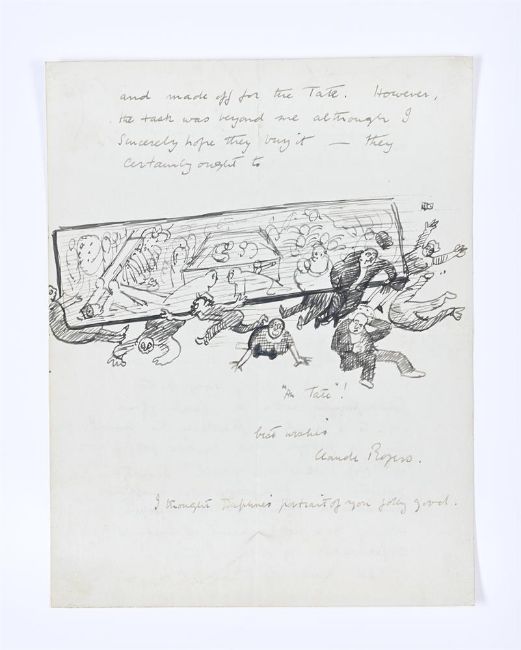 and made off for the Tate. However,
the task was beyond me although I
Sincerely hope they buy it — they
certainly ought to
Tate"!
best wishes
Claude Rogers.
I thought Daphne's portrait of you jolly good.